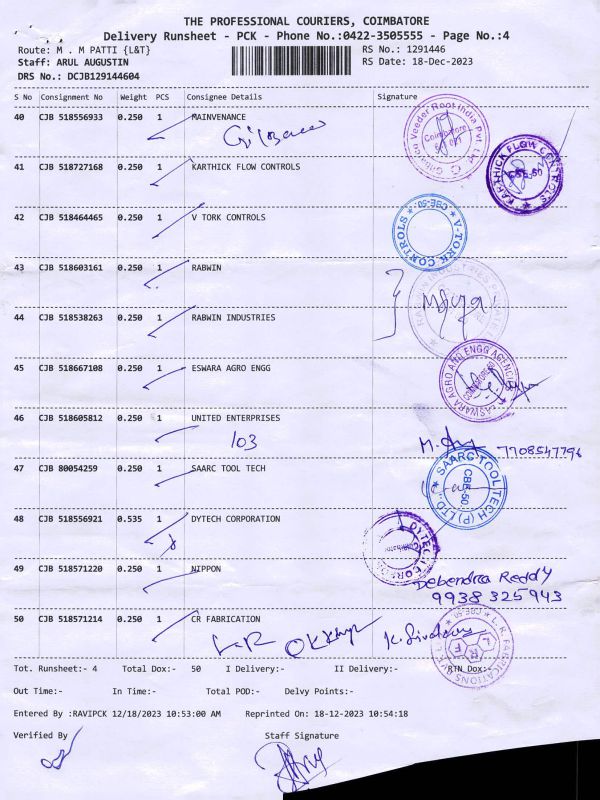 THE PROFESSIONAL COURIERS, COIMBATORE
Delivery Runsheet - PCK - Phone No.:0422-3505555 - Page No.:4
Route: M . M PATTI {L&T} RS No.: 1291446
Staff: ARUL AUGUSTIN RS Date: 18-Dec-2023
DRS No.: DCJB129144604
S No Consignment No Weight PCS Consignee Details Signature
40 CJB 518556933 0.250 1 MAINVENANCE
Coimbatore
41 CJB 518727168 0.250 1 KARTHICK FLOW CONTROLS
KARTHICK FLOW CONTROLS CBE-50
42 CJB 518464465 0.250 1 V TORK CONTROLS
V-TORK CONTROLS CBE-50.
43 CJB 518603161 0.250 1 RABWIN
44 CJB 518538263 0.250 1 RABWIN INDUSTRIES
RABWIN INDUSTRIES PRIVATE
45 CJB 518667108 0.250 1 ESWARA AGRO ENGG
ESWARA AGRO AND ENGG AGENCIES
46 CJB 518605812 0.250 1 UNITED ENTERPRISES
103 7708547796
47 CJB 80054259 0.250 1 SAARC TOOL TECH
SAARC TOOL TECH (P) LTD CBE-50
48 CJB 518556921 0.535 1 DYTECH CORPORATION
49 CJB 518571220 0.250 1 NIPPON
Debendra Reddy
9938325943
50 CJB 518571214 0.250 1 CR FABRICATION
LRF
Tot. Runsheet:- 4 Total Dox:- 50 I Delivery:- II Delivery:- RTN Dox:-
Out Time:- In Time:- Total POD:- Delvy Points:-
Entered By :RAVIPCK 12/18/2023 10:53:00 AM Reprinted On: 18-12-2023 10:54:18
Verified By Staff Signature